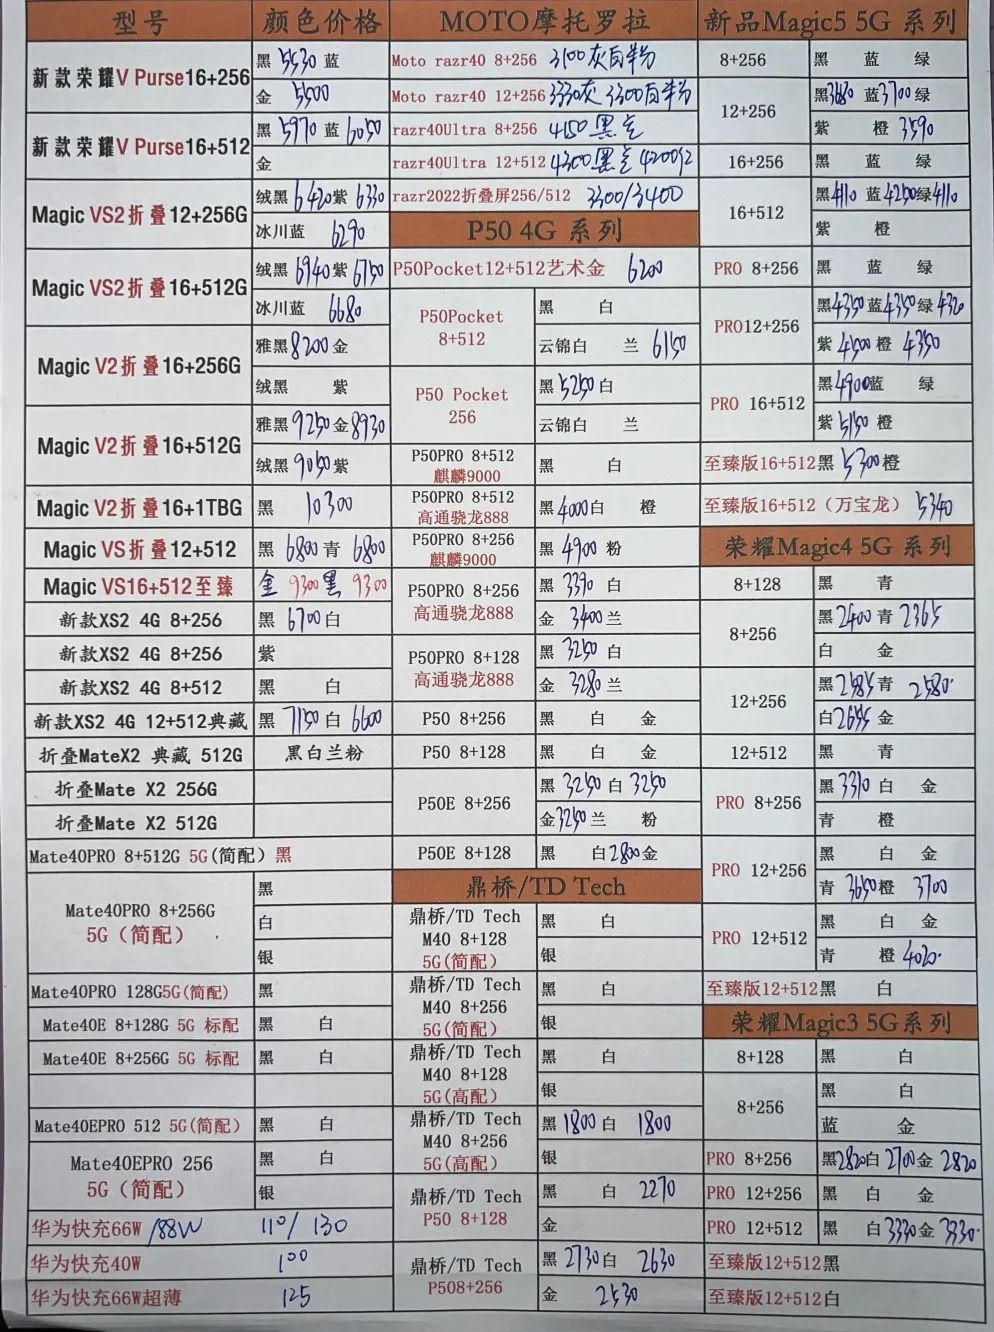 型号 颜色价格
新款荣耀V Purse16+256 黑 5530 蓝
金 5500
新款荣耀V Purse16+512 黑 5970 蓝 6050
金
Magic VS2折叠12+256G 绒黑 6420 紫 6330
冰川蓝 6290
Magic VS2折叠16+512G 绒黑 6940 紫 6750
冰川蓝 6680
Magic V2折叠16+256G 雅黑 8200 金
绒黑 紫
Magic V2折叠16+512G 雅黑 9250 金 8930
绒黑 9050 紫
Magic V2折叠16+1TBG 黑 10300
Magic VS折叠12+512 黑 6800 青 6800
Magic VS16+512至臻 金 9300 黑 9300
新款XS2 4G 8+256 黑 6700 白
新款XS2 4G 8+256 紫
新款XS2 4G 8+512 黑 白
新款XS2 4G 12+512典藏 黑 7150 白 6600
折叠MateX2 典藏 512G 黑白兰粉
折叠Mate X2 256G
折叠Mate X2 512G
Mate40PRO 8+512G 5G(简配) 黑
Mate40PRO 8+256G 黑
5G(简配) 白
银
Mate40PRO 128G5G(简配) 黑
Mate40E 8+128G 5G 标配 黑 白
Mate40E 8+256G 5G 标配 黑 白
Mate40EPRO 512 5G(简配) 黑 白
Mate40EPRO 256 黑 白
5G(简配) 银
华为快充66W /88W 110/ 130
华为快充40W 100
华为快充66W超薄 125
MOTO摩托罗拉
Moto razr40 8+256 3100灰白粉
Moto razr40 12+256 3330灰 3300白粉
razr40Ultra 8+256 4150 黑
razr40Ultra 12+512 4300 黑 4200
razr2022折叠屏256/512 3300/3400
P50 4G 系列
P50Pocket12+512艺术金 6200
P50Pocket 黑 白
8+512 云锦白 兰 6150
P50 Pocket 黑 5250 白
256 云锦白 兰
P50PRO 8+512
麒麟9000 黑 白
P50PRO 8+512
高通骁龙888 黑 4000 白 橙
P50PRO 8+256
麒麟9000 黑 4900 粉
P50PRO 8+256 黑 3390 白
高通骁龙888 金 3400 兰
P50PRO 8+128 黑 3250 白
高通骁龙888 金 3280 兰
P50 8+256 黑 白 金
P50 8+128 黑 白 金
P50E 8+256 黑 3250 白 3250
金 3250 兰 粉
P50E 8+128 黑 白 2800 金
鼎桥/TD Tech
鼎桥/TD Tech 黑 白
M40 8+128
5G(简配) 银
鼎桥/TD Tech 黑 白
M40 8+256
5G(简配) 银
鼎桥/TD Tech 黑 白
M40 8+128
5G(高配) 银
鼎桥/TD Tech 黑 1800 白 1800
M40 8+256
5G(高配) 银
鼎桥/TD Tech 黑 白 2270
P50 8+128 金
鼎桥/TD Tech 黑 2730 白 2630
P508+256 金 2530
新品Magic5 5G 系列
8+256 黑 蓝 绿
12+256 黑 3680 蓝 3700 绿
紫 橙 3590
16+256 黑 蓝 绿
16+512 黑 4110 蓝 4250 绿 4110
紫 橙
PRO 8+256 黑 蓝 绿
PRO12+256 黑 4350 蓝 4350 绿 4320
紫 4500 橙 4350
PRO 16+512 黑 4900 蓝 绿
紫 5150 橙
至臻版16+512黑 5300 橙
至臻版16+512(万宝龙) 5340
荣耀Magic4 5G 系列
8+128 黑 青
8+256 黑 2400 青 2365
白 金
12+256 黑 2585 青 2580
白 2655 金
12+512 黑 青
PRO 8+256 黑 3310 白 金
青 橙
PRO 12+256 黑 白 金
青 3650 橙 3700
PRO 12+512 黑 白 金
青 橙 4020
至臻版12+512黑 白
荣耀Magic3 5G系列
8+128 黑 白
8+256 黑 白
蓝 金
PRO 8+256 黑 2820 白 2700 金 2820
PRO 12+256 黑 白 金
PRO 12+512 黑 白 3330 金 3330
至臻版12+512黑
至臻版12+512白